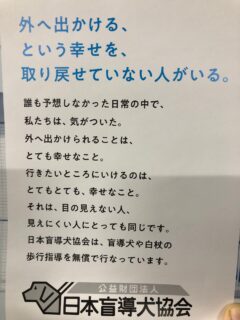 外へ出かける、
という幸せを、
取り戻せていない人がいる。
誰も予想しなかった日常の中で、
私たちは、気がついた。
外へ出かけられることは、
とても幸せなこと。
行きたいところにいけるのは、
とてもとても、幸せなこと。
それは、目の見えない人、
見えにくい人にとっても同じです。
日本盲導犬協会は、盲導犬や白杖の
歩行指導を無償で行なっています。
公益財団法人
日本盲導犬協会